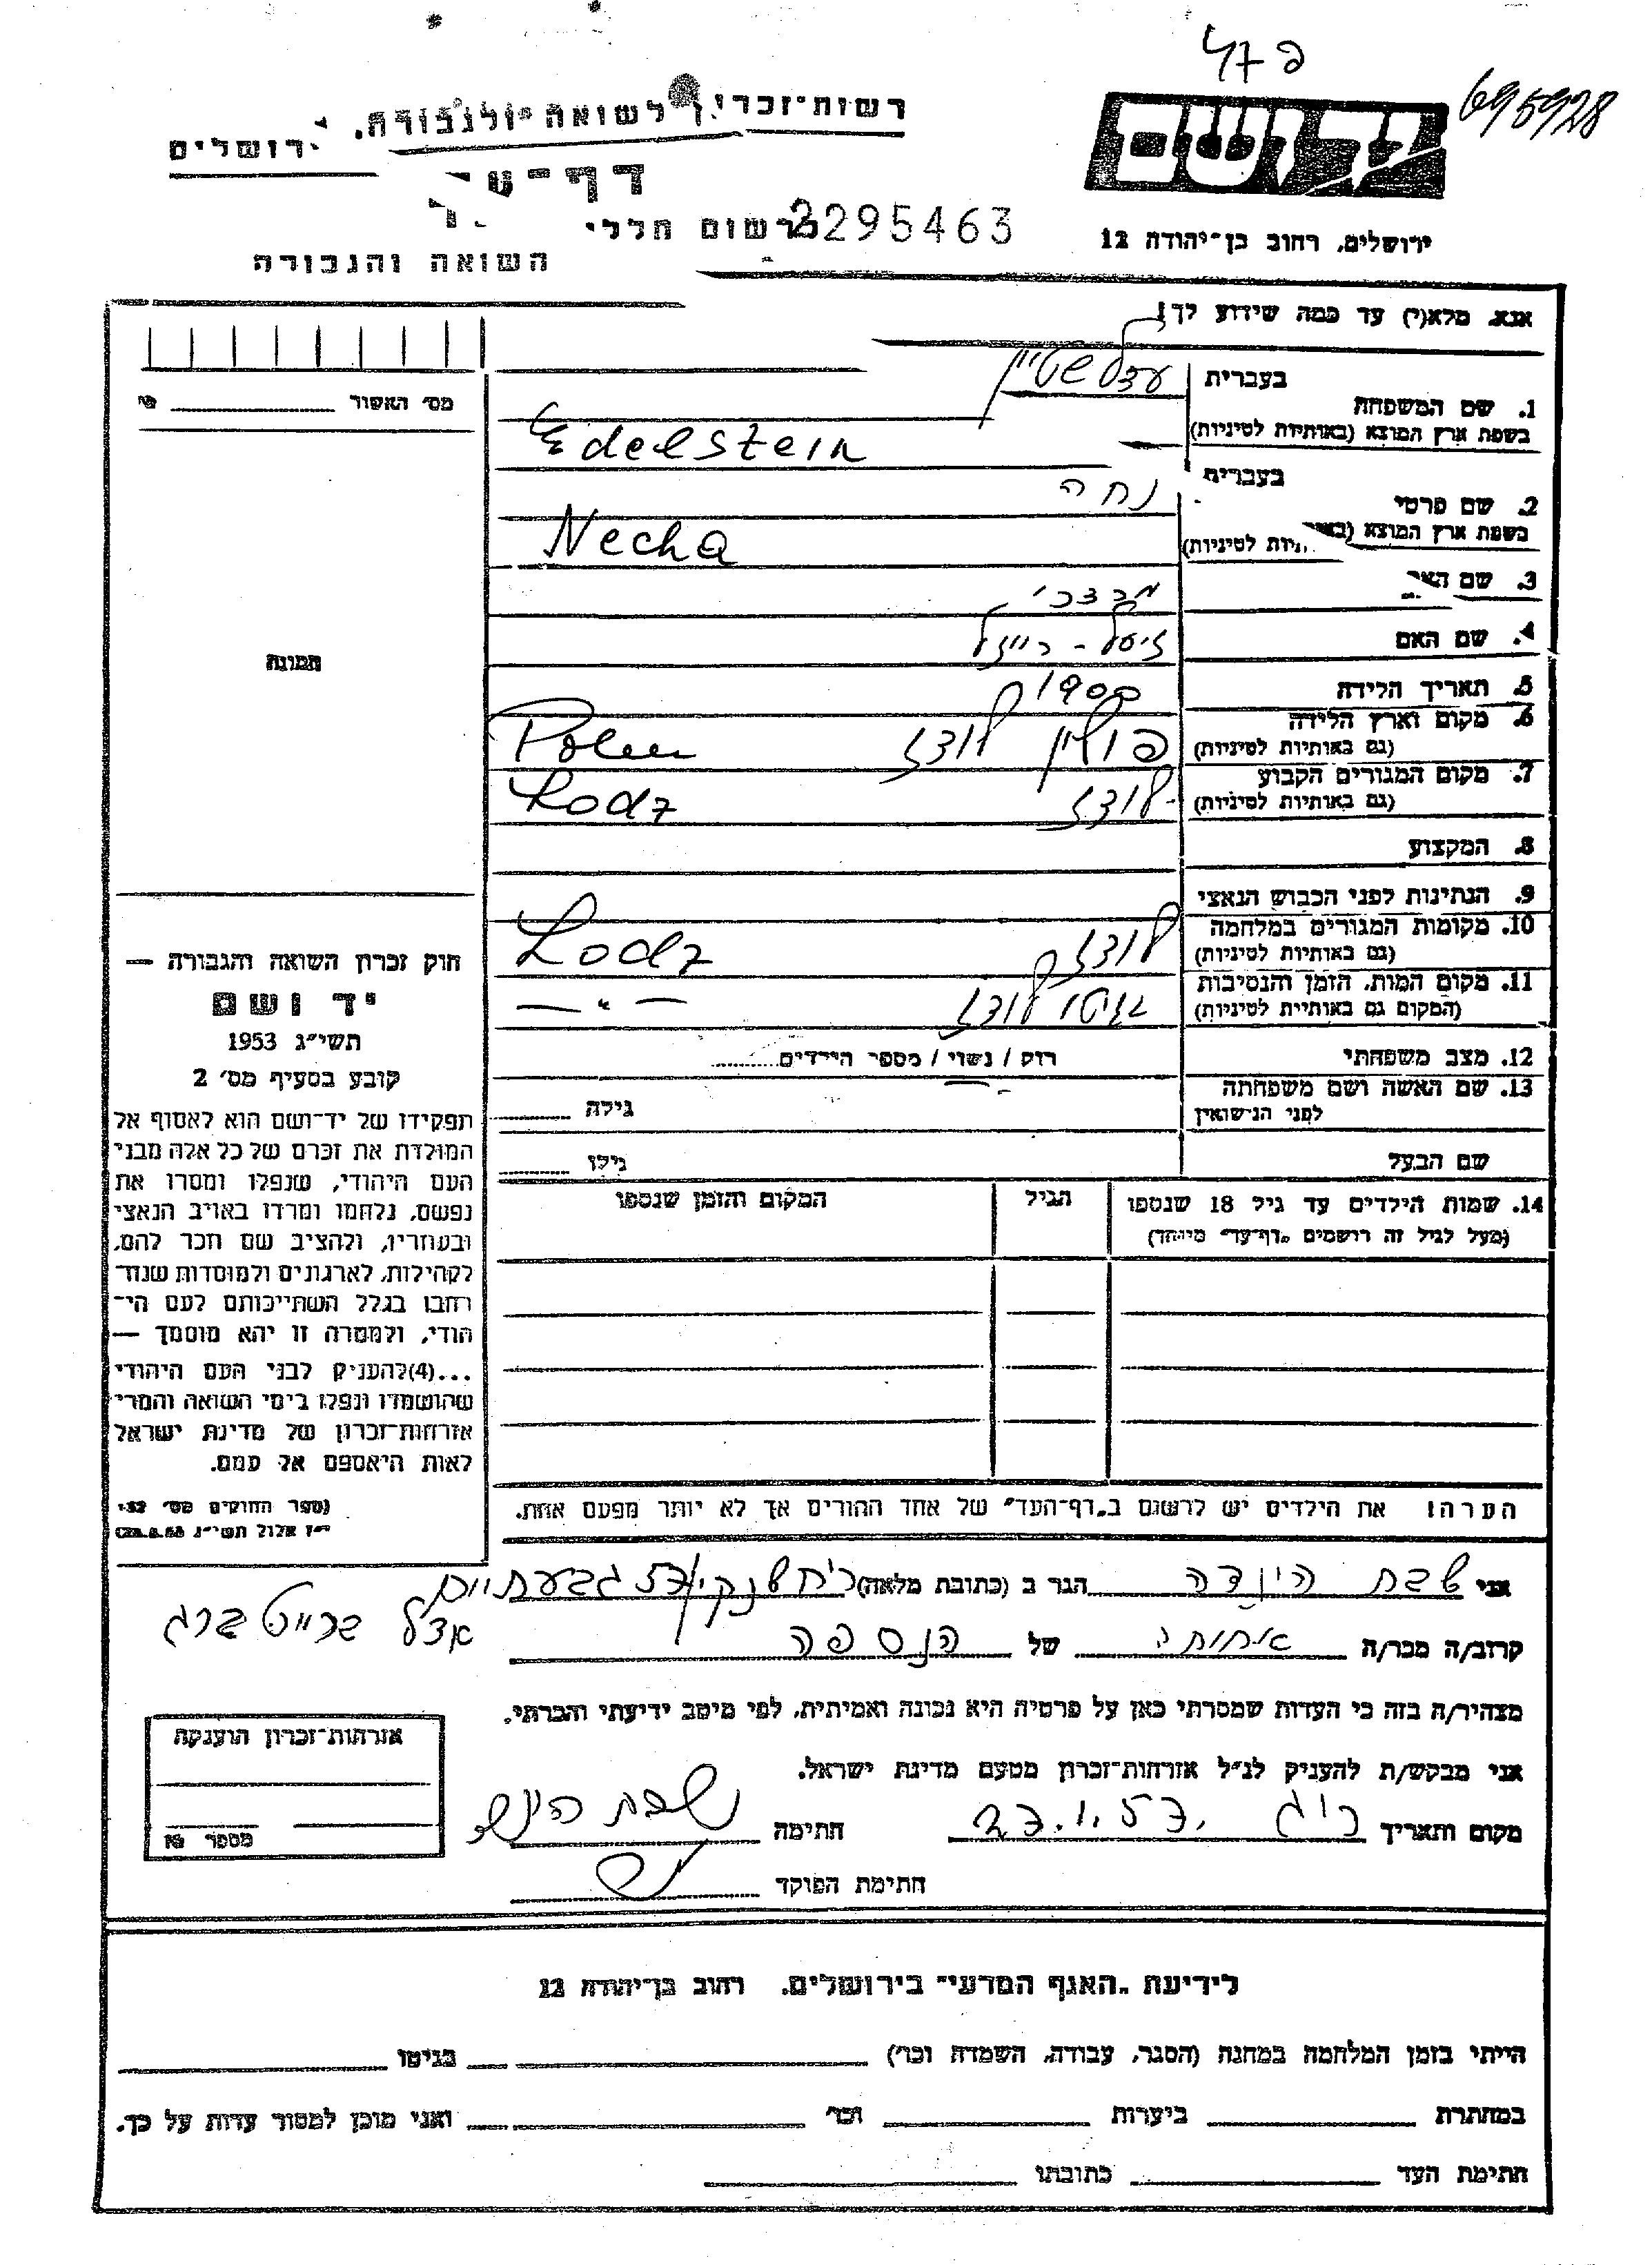 695928
רשות-זכרון לשואה ולגבורה, ירושלים
דף-עד
3295463
לרשום חללי
השואה והגבורה
ירושלים, רחוב בן-יהודה 12
אנא, מלא(י) עד כמה שידוע לך!
מס' האשור
1. שם המשפחה
בעברית
עדלשטיין
בשפת ארץ המוצא (באותיות לטיניות)
Edelstein
2. שם פרטי
בעברית
נחה
בשפת ארץ המוצא (באותיות לטיניות)
Necha
3. שם האב
מרדכי
4. שם האם
זיסל - רייזל
5. תאריך הלידה
1900
6. מקום וארץ הלידה
(גם באותיות לטיניות)
פולין לודז Polen
7. מקום המגורים הקבוע
(גם באותיות לטיניות)
לודז Lodz
8. המקצוע
9. הנתינות לפני הכבוש הנאצי
10. מקומות המגורים במלחמה
(גם באותיות לטיניות)
לודז Lodz
11. מקום המות, הזמן והנסיבות
(המקום גם באותיות לטיניות)
גיטו לודז — " —
12. מצב משפחתי
רווק / נשוי / מספר הילדים
13. שם האשה ושם משפחתה
לפני הנישואין
גילה
שם הבעל
גילו
14. שמות הילדים עד גיל 18 שנספו
(מעל לגיל זה רושמים "דף-עד" מיוחד)
הגיל
המקום והזמן שנספו
תמונה
חוק זכרון השואה והגבורה —
יד ושם
תשי"ג 1953
קובע בסעיף מס' 2
תפקידו של יד-ושם הוא לאסוף אל
המולדת את זכרם של כל אלה מבני
העם היהודי, שנפלו ומסרו את
נפשם, נלחמו ומרדו באויב הנאצי
ובעוזריו, ולהציב שם וזכר להם,
לקהילות, לארגונים ולמוסדות שנח-
רבו בגלל השתייכותם לעם הי-
הודי, ולמטרה זו יהא מוסמך —
...(4)להעניק לבני העם היהודי
שהושמדו ונפלו בימי השואה והמרי
אזרחות-זכרון של מדינת ישראל
לאות היאספם אל עמם.
(ספר החוקים מס' 132
י"ז אלול תשי"ג 28.8.53)
הערה! את הילדים יש לרשום ב"דף-העד" של אחד ההורים אך לא יותר מפעם אחת.
אני שבת הינדה הגר ב (כתובת מלאה) גבעתיים
קרוב/ה מכר/ה אחותה של הנספה
אצל ברייטברג
מצהיר/ה בזה כי העדות שמסרתי כאן על פרטיה היא נכונה ואמיתית, לפי מיטב ידיעתי והכרתי.
אני מבקש/ת להעניק לנ"ל אזרחות-זכרון מטעם מדינת ישראל.
מקום ותאריך ר"ג 27.1.57. חתימה שבת הינדה
חתימת הפוקד
אזרחות-זכרון הוענקה
מספר
לידיעת "האגף המדעי" בירושלים, רחוב בן-יהודה 12
הייתי בזמן המלחמה במחנה (הסגר, עבודה, השמדה וכו') בגיטו
במחתרת ביערות וכו' ואני מוכן למסור עדות על כך.
חתימת העד כתובתו